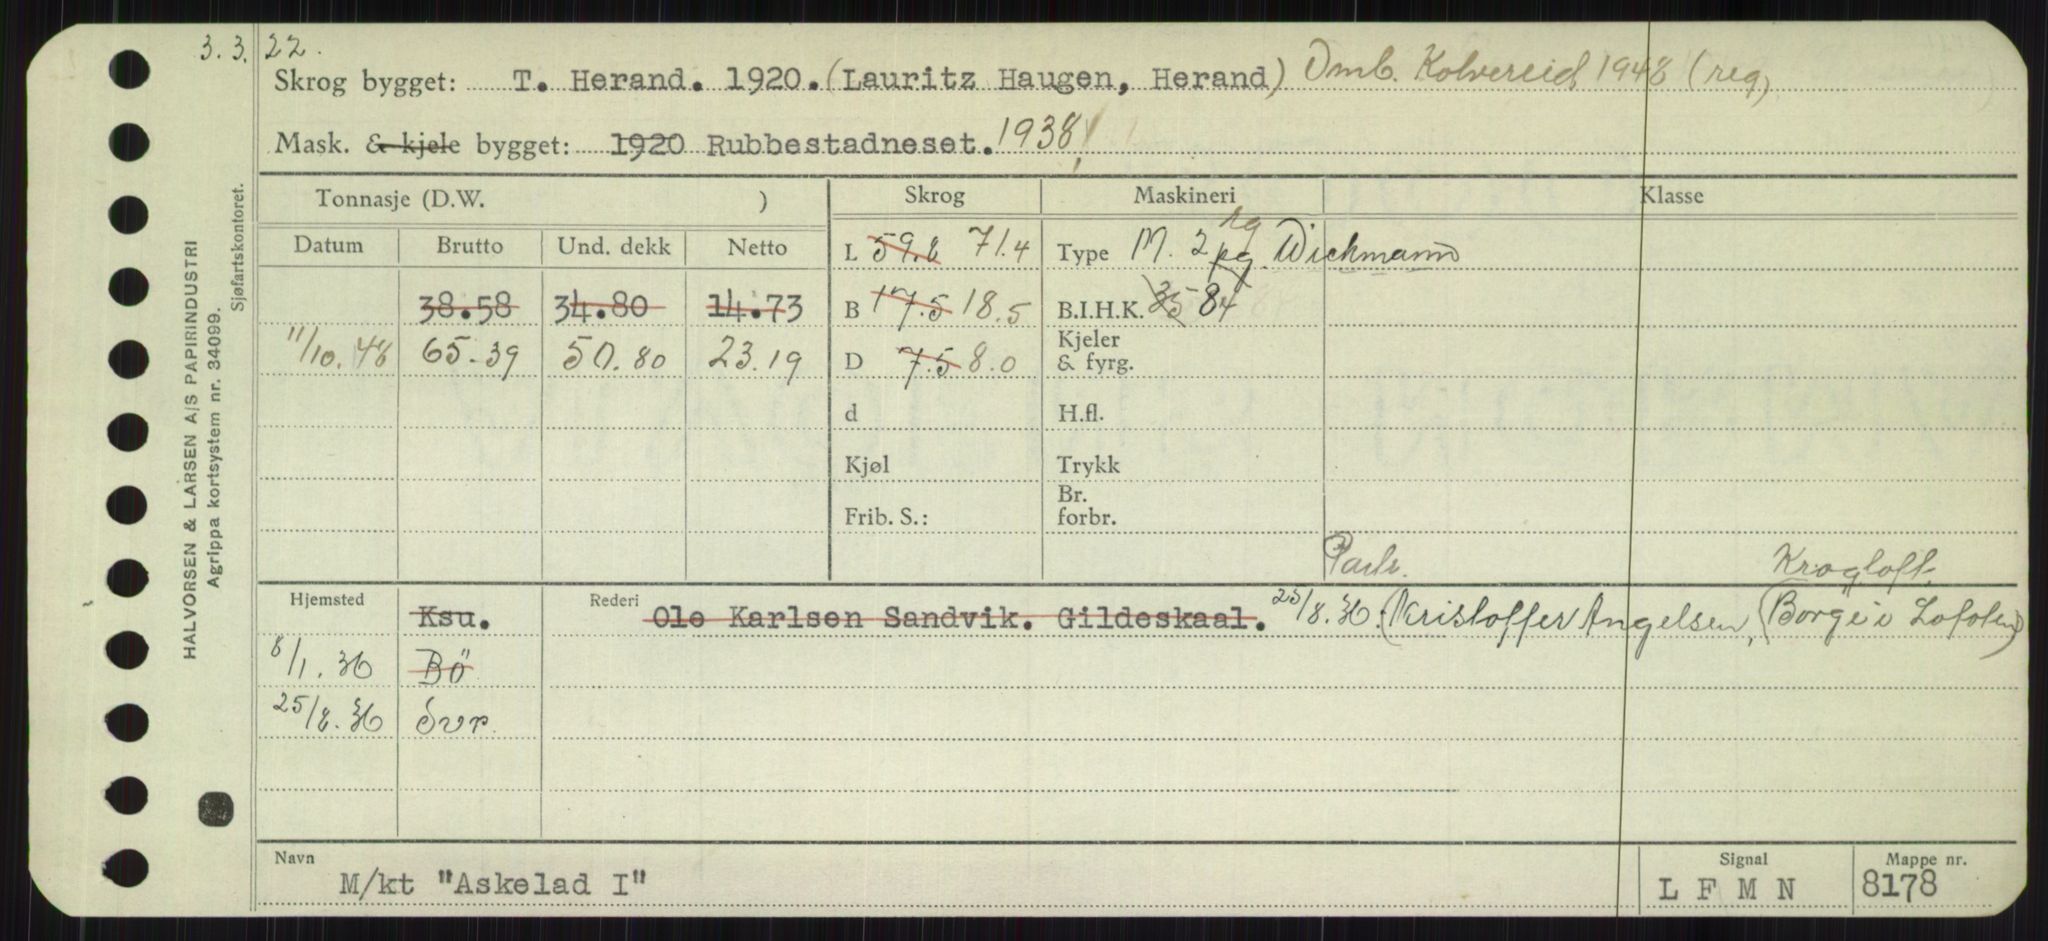 3.3.22.
Skrog bygget: T. Herand. 1920. (Lauritz Haugen, Herand) Omb. Kolvereid 1948 (reg)
Mask. & kjele bygget: 1920 Rubbestadneset. 1938
Tonnasje (D.W. ) Skrog Maskineri Klasse
Datum Brutto Und. dekk Netto L 59.8 71.4 Type M. 2 pg. rg Wichmann
38.58 34.80 14.73 B 17.5 18.5 B.I.H.K. 35 84
11/10.48 65.39 50.80 23.19 D 7.5 8.0 Kjeler & fyrg.
d H.fl.
Kjøl Trykk
Frib. S.: Br. forbr.
Partr. Krogtoft.
Hjemsted Ksu. Rederi Ole Karlsen Sandvik. Gildeskaal. 25/8.36. (Kristoffer Angelsen, (Borge i Lofoten)
8/1.36 Bö
25/8.36 Svr.
Navn M/kt "Askelad I" Signal L F M N Mappe nr. 8178
HALVORSEN & LARSEN A/S PAPIRINDUSTRI
Agrippa kortsystem nr. 34099.
Sjøfartskontoret.